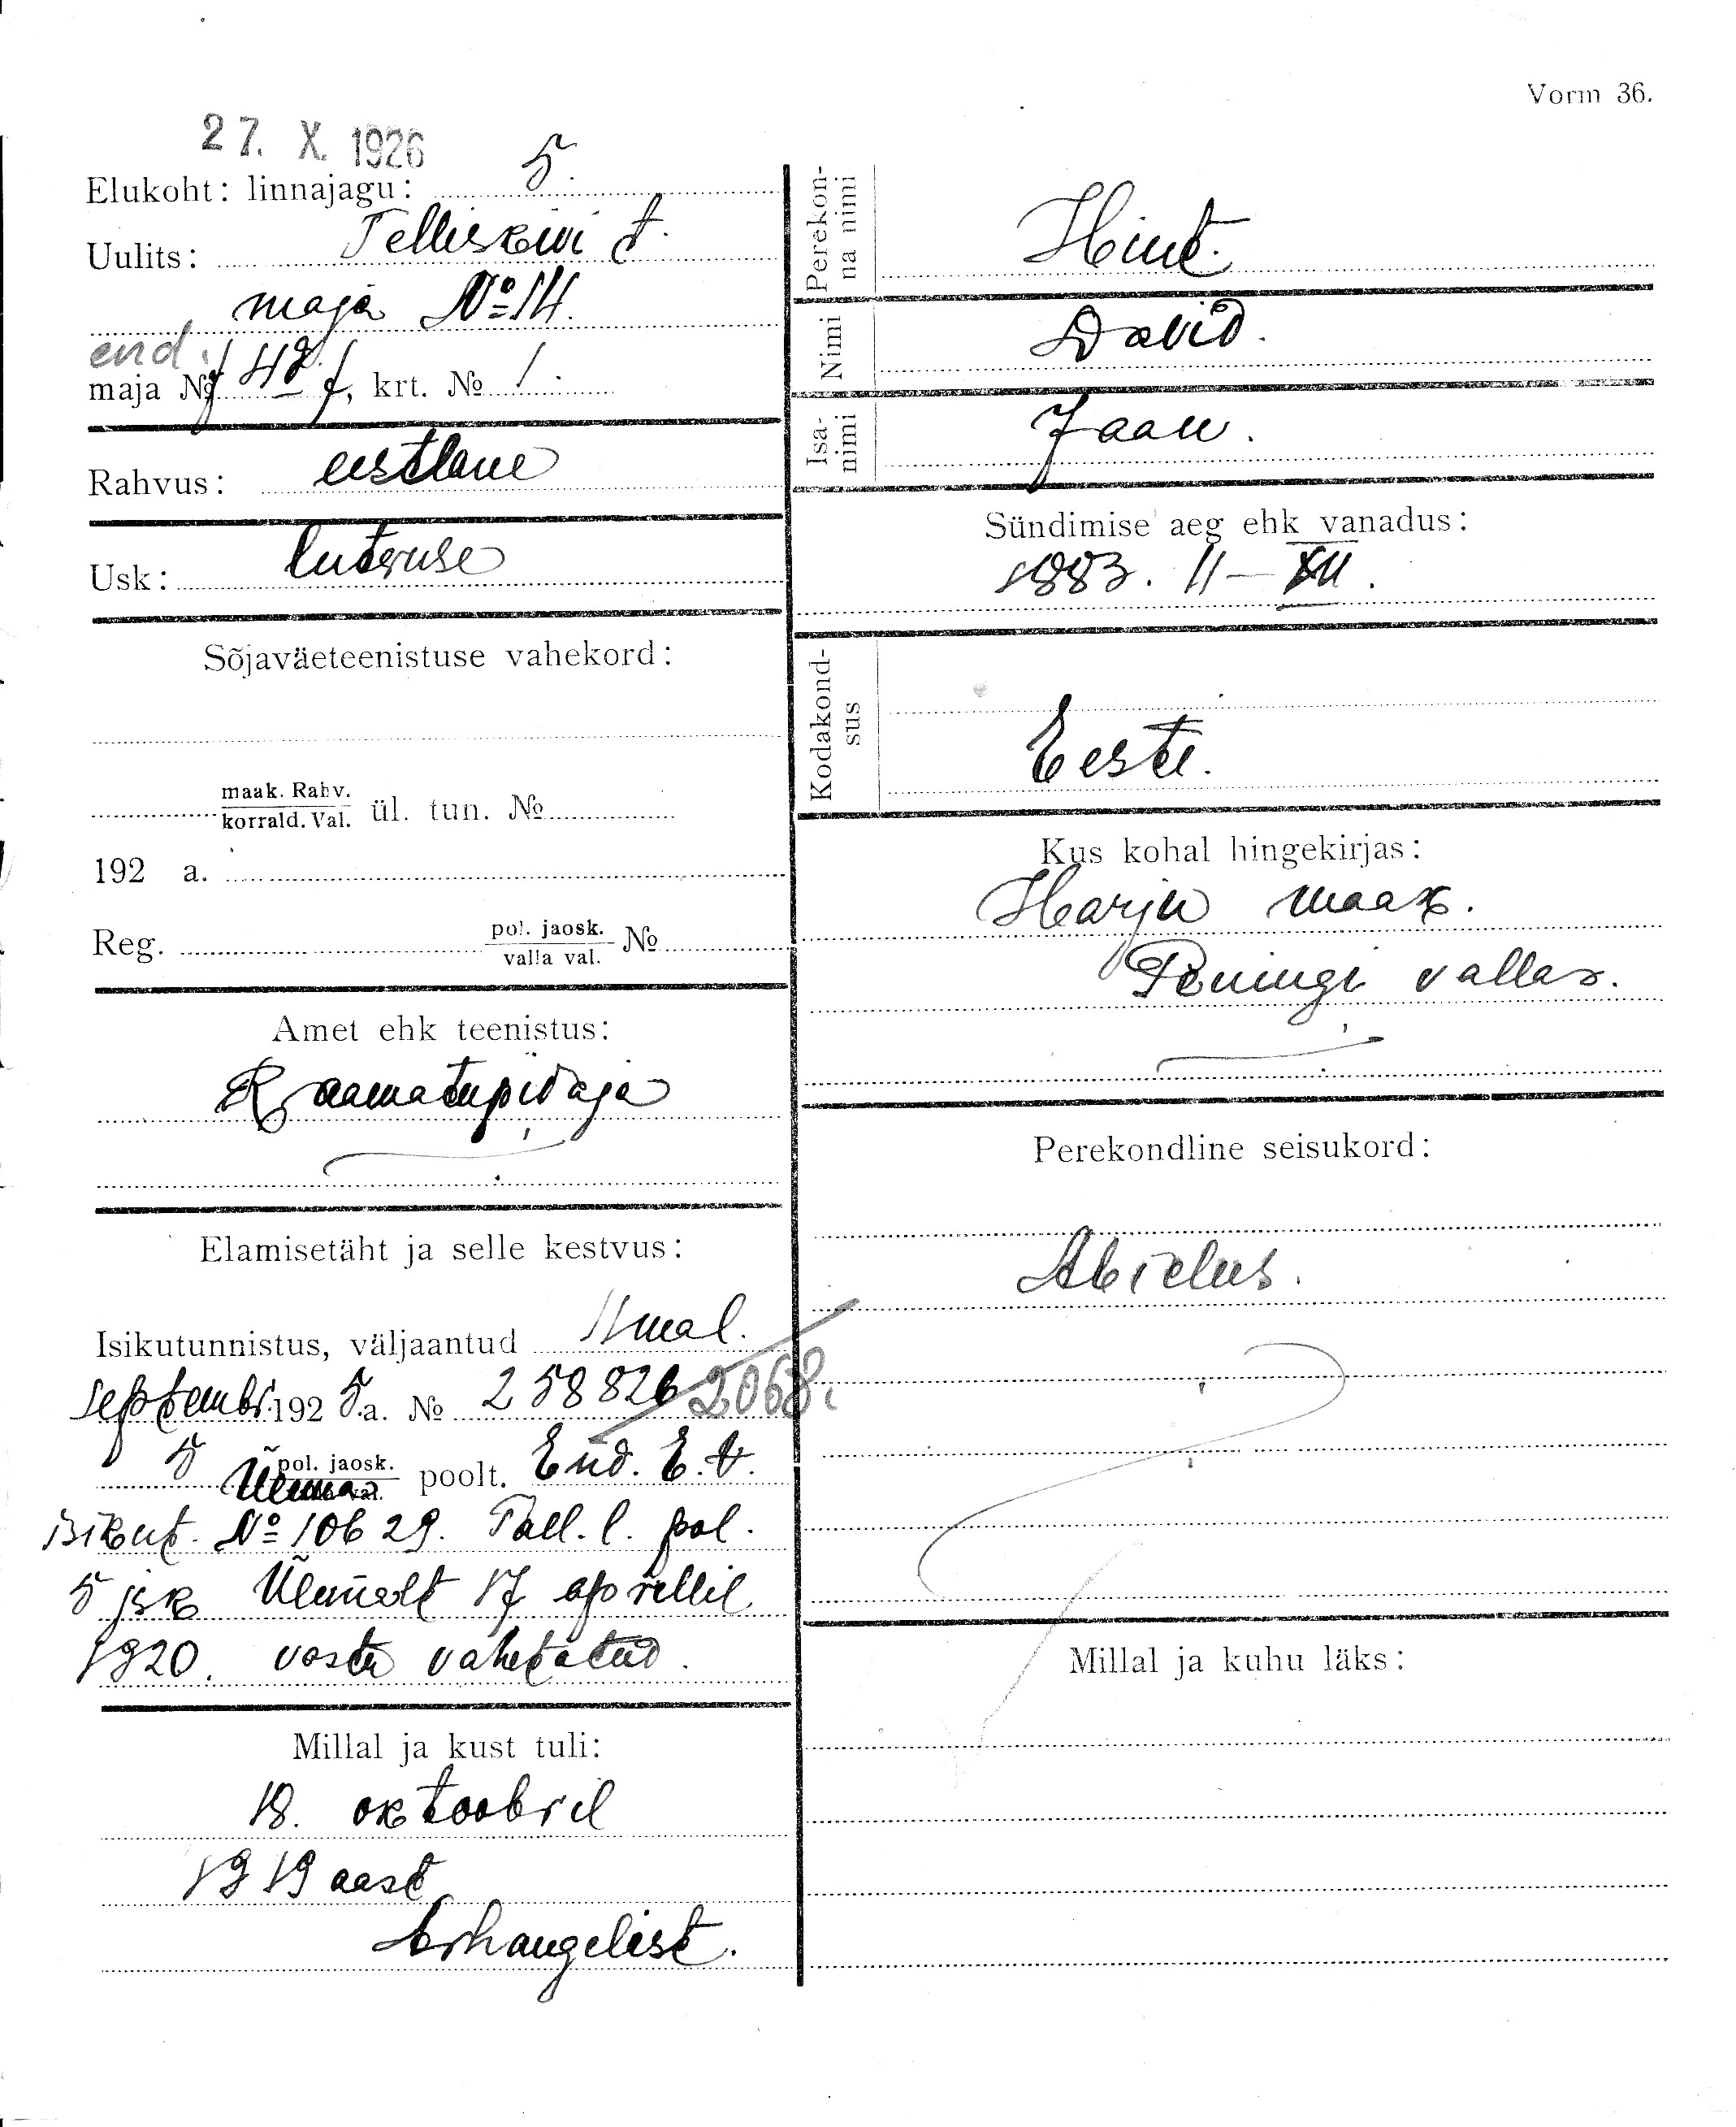 Vorm 36.
27. X. 1926
Elukoht: linnajagu: 5.
Uulits: Telliskivi t.
maja № 14.
end.
maja № 42 f, krt. № 1.
Rahvus: eestlane
Usk: luteruse
Sõjaväeteenistuse vahekord:
maak. Rahv.
korrald. Val. ül. tun. №
192 a.
Reg. pol. jaosk.
valla val. №
Amet ehk teenistus:
Raamatupidaja
Elamisetäht ja selle kestvus:
Isikutunnistus, väljaantud 11 mal.
septembr. 192 5 a. № 258826 2068.
5 pol. jaosk. poolt. End. E.V.
Ülema
isikut. № 10629. Tall. l. pol.
5 jsk Ülemalt 17 aprillil
1920. vastu vahetatud.
Millal ja kust tuli:
18. oktoobril
1919 aast
Arhangelist.
Perekon-
na nimi
Hint.
Nimi
David.
Isa-
nimi
Jaan.
Sündimise aeg ehk vanadus:
1883. 11 – XII.
Kodakond-
sus
Eesti.
Kus kohal hingekirjas:
Harju maak.
Peningi vallas.
Perekondline seisukord:
Abielus.
Millal ja kuhu läks: